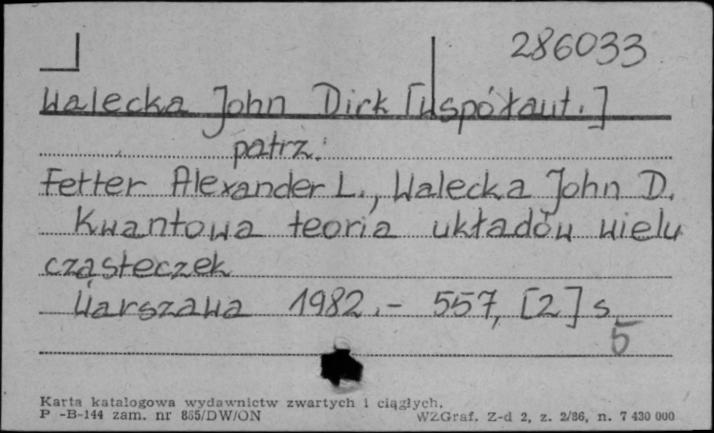 286033
Walecka John Dirk [Współaut.]
patrz:
Fetter Alexander L., Walecka John D.
Kwantowa teoria układów wielu
cząsteczek
Warszawa 1982.- 557, [2] s.
5
Karta katalogowa wydawnictw zwartych i ciągłych.
P -B-144 zam. nr 835/DW/ON WZGraf. Z-d 2, z. 2/86, n. 7 430 000